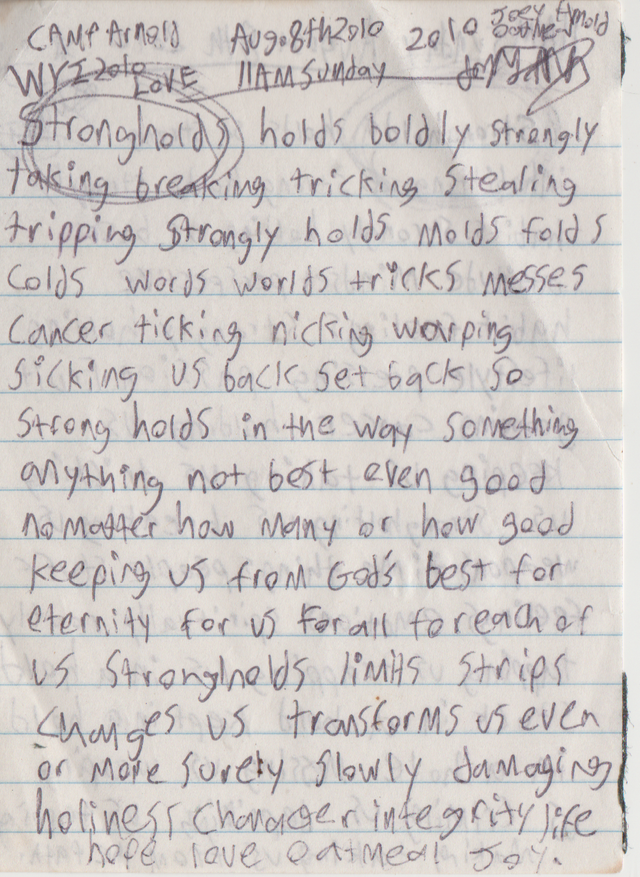 CAMP Arnold Aug. 8th 2010 2010 Joey Arnold
WYI 2010 LOVE 11AM Sunday
Strongholds holds boldly strongly
taking breaking tricking stealing
tripping strongly holds molds folds
colds words worlds tricks messes
cancer ticking nicking warping
sicking us back set back so
strong holds in the way something
anything not best even good
no matter how many or how good
keeping us from God's best for
eternity for us for all for each of
us strongholds limits strips
changes us transforms us even
or more surely slowly damaging
holiness character integrity life
hope love oatmeal Joy.